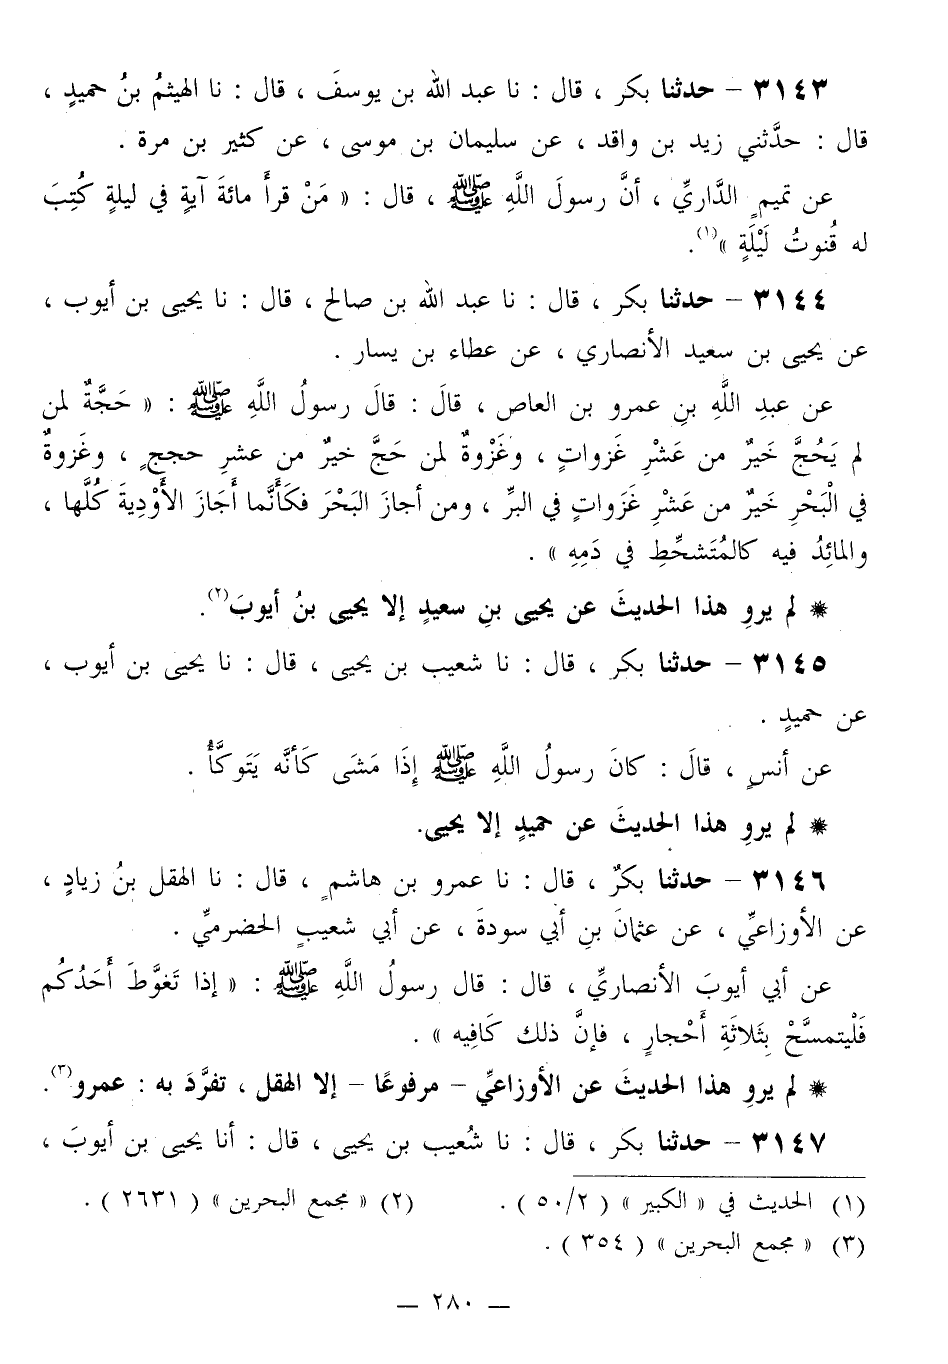 ٣١٤٣ – حدثنا بكر ، قال : نا عبد الله بن يوسفَ ، قال : نا الهيثمُ بنُ حميدٍ ،
قال : حدَّثني زيد بن واقد ، عن سليمان بن موسى ، عن كثير بن مرة .
عن تميمٍ الدَّاريِّ ، أنَّ رسولَ اللَّهِ ﷺ ، قال : « مَنْ قرأَ مائةَ آيةٍ في ليلةٍ كُتِبَ
له قُنوتُ لَيْلَةٍ »(١).
٣١٤٤ – حدثنا بكر ، قال : نا عبد الله بن صالح ، قال : نا يحيى بن أيوب ،
عن يحيى بن سعيد الأنصاري ، عن عطاء بن يسار .
عن عبدِ اللَّهِ بنِ عمرو بن العاص ، قالَ : قالَ رسولُ اللَّهِ ﷺ : « حَجَّةٌ لمن
لم يَحُجَّ خَيرٌ من عَشْرِ غَزواتٍ ، وغَزْوةٌ لمن حَجَّ خيرٌ من عشرِ حججٍ ، وغَزوةٌ
في الْبَحْرِ خَيرٌ من عَشْرِ غَزَواتٍ في البرِّ ، ومن أجازَ البَحْرَ فكَأَنَّما أَجَازَ الأَوْدِيةَ كُلَّها ،
والمائِدُ فيه كالمُتَشحِّطِ في دَمِهِ » .
✵ لم يروِ هذا الحديثَ عن يحيى بنِ سعيدٍ إلا يحيى بنُ أيوبَ(٢).
٣١٤٥ – حدثنا بكر ، قال : نا شعيب بن يحيى ، قال : نا يحيى بن أيوب ،
عن حميدٍ .
عن أنسٍ ، قالَ : كانَ رسولُ اللَّهِ ﷺ إِذَا مَشَى كَأنَّه يَتَوكَّأُ .
✵ لم يروِ هذا الحديثَ عن حميدٍ إلا يحيى.
٣١٤٦ – حدثنا بكرٌ ، قال : نا عمرو بن هاشمٍ ، قال : نا الهقل بنُ زيادٍ ،
عن الأوزاعيِّ ، عن عثمانَ بنِ أبي سودةَ ، عن أبي شعيبٍ الحضرميِّ .
عن أبي أيوبَ الأنصاريِّ ، قال : قال رسولُ اللَّهِ ﷺ : « إذا تَغوَّطَ أَحَدُكُم
فَلْيتمسَّحْ بِثَلاثَةِ أَحْجارٍ ، فإنَّ ذلك كَافِيه » .
✵ لم يروِ هذا الحديثَ عن الأوزاعيِّ – مرفوعًا – إلا الهقل ، تفرَّدَ به : عمرو(٣).
٣١٤٧ – حدثنا بكر ، قال : نا شُعيب بن يحيى ، قال : أنا يحيى بن أيوبَ ،
(١) الحديث في « الكبير » ( ٥٠/٢ ) . (٢) « مجمع البحرين » ( ٢٦٣١ ) .
(٣) « مجمع البحرين » ( ٣٥٤ ) .
— ٢٨٠ —